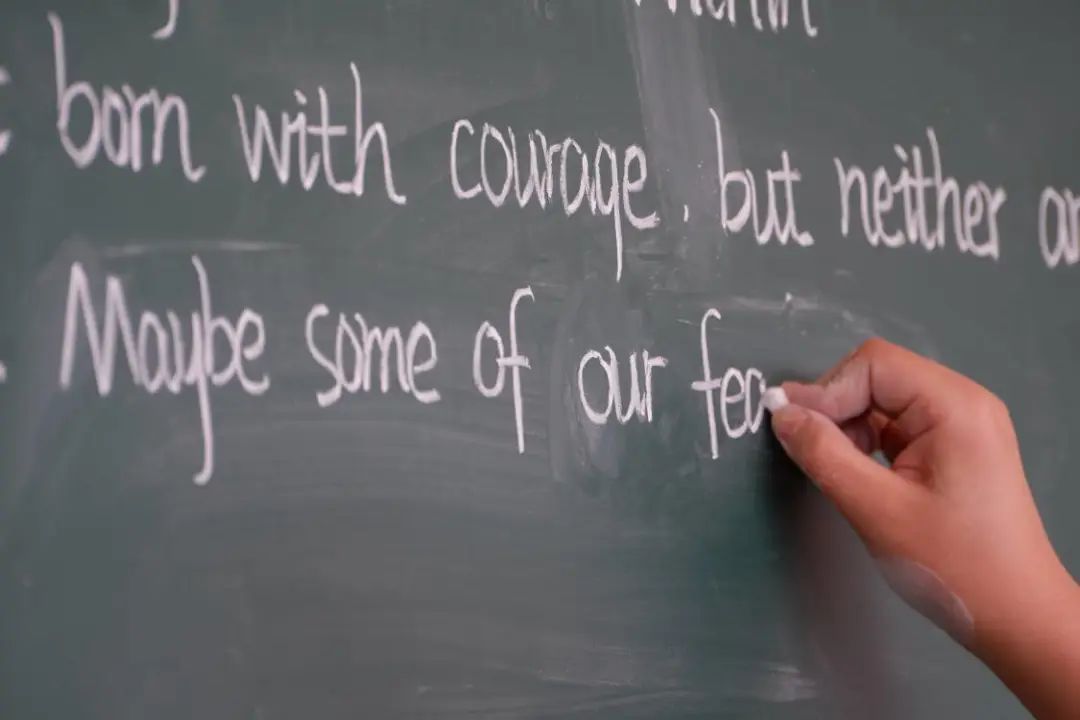 born with courage, but neither
Maybe some of our